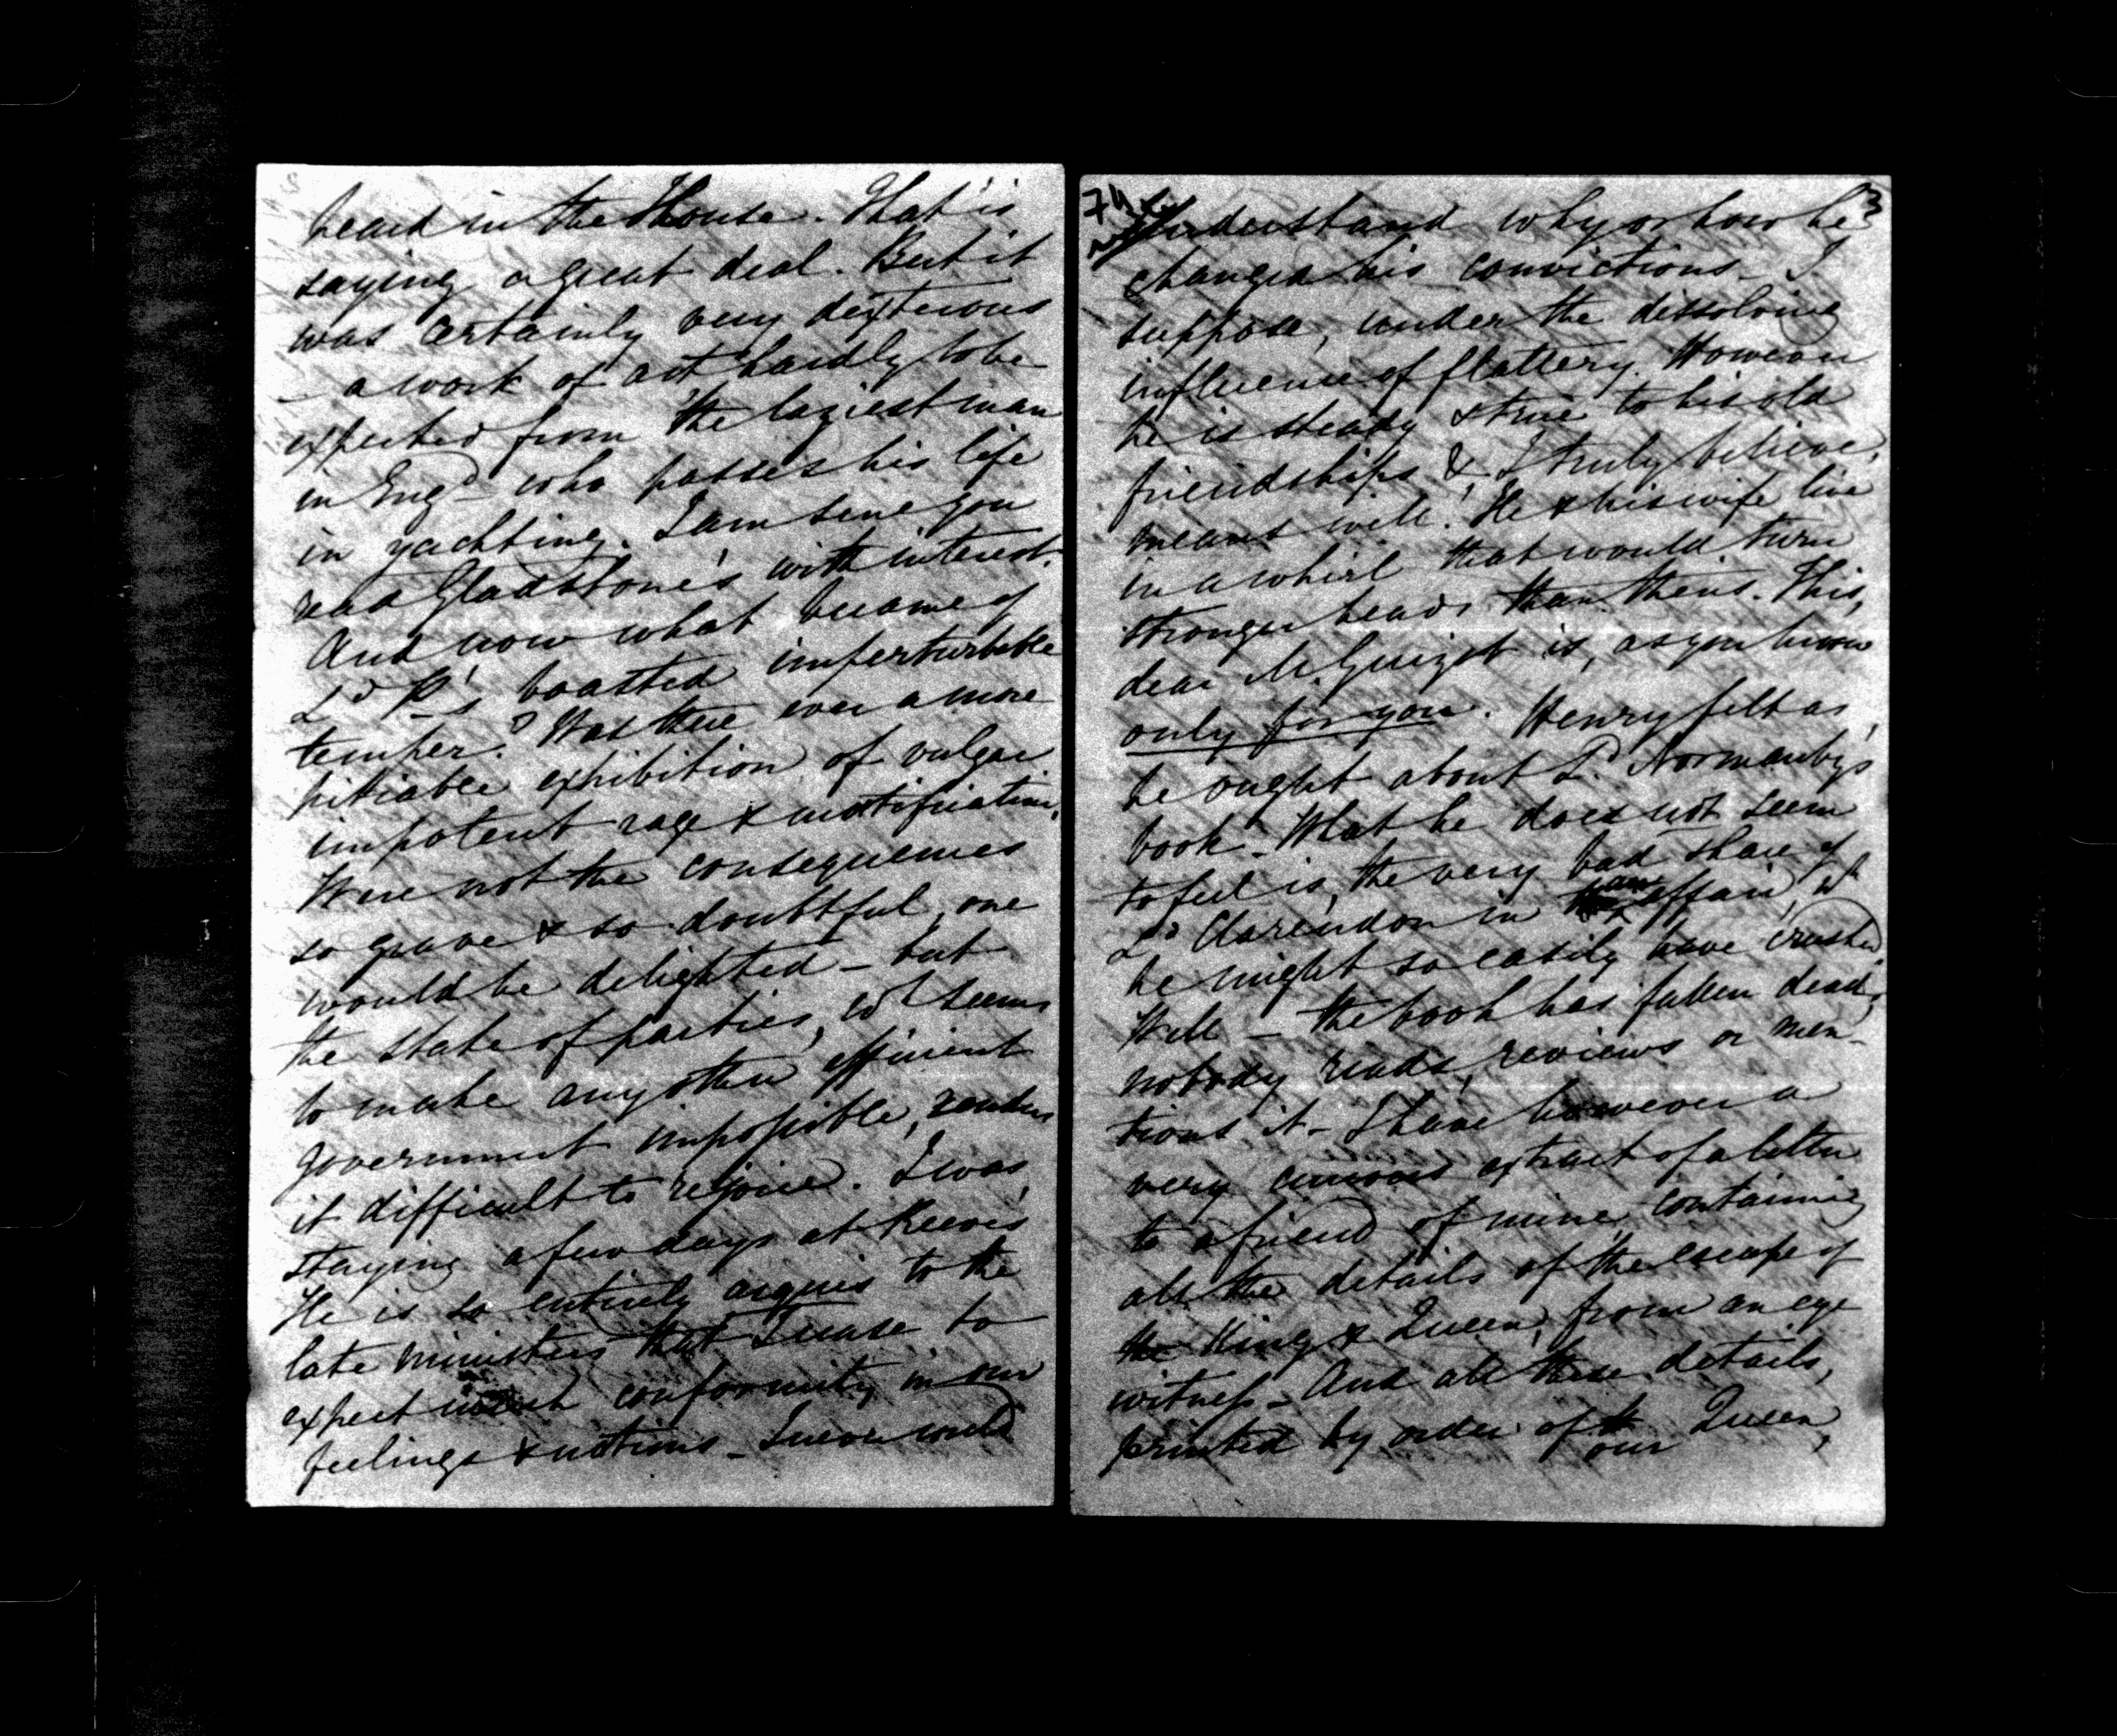 heard in the House. That is
saying a great deal. But it
was certainly very dexterous
- a work of art hardly to be
expected from "the laziest man
in Engd" who passes his life
in yachting. I am sure you
read Gladstone's with interest.
And now what became of
Ld P-'s boasted imperturbable
temper? Was there ever a more
pitiable exhibition of vulgar
impotent rage & mortification.
Were not the consequences
so grave & so doubtful, one
would be delighted - but
the state of parties, wh seems
to make any other efficient
government impossible, renders
it difficult to rejoice. I was
staying a few days at Reeve's
He is so entirely acquis to the
late ministers that I cease to
expect much conformity in our
feelings & notions - I never could
74
3
understand why or how he
changed his convictions - I
suppose, under the dissolving
influence of flattery. However
he is steady & true to his old
friendships &, I truly believe,
means well. He & his wife live
in a whirl that would turn
stronger heads than theirs. This,
dear M. Guizot is, as you know
only for you. Henry felt as
he ought about Ld Normanby's
book - What he does not seem
to feel is, the very bad share of
Ld Clarendon in an affair, wh
he might so easily have crushed.
Well - the book has fallen dead;
nobody reads, reviews or men-
tions it - I have however a
very curious extract of a letter
to a friend of mine containing
all the details of the escape of
the King & Queen, from an eye
witness - And all these details,
printed by order of our Queen,